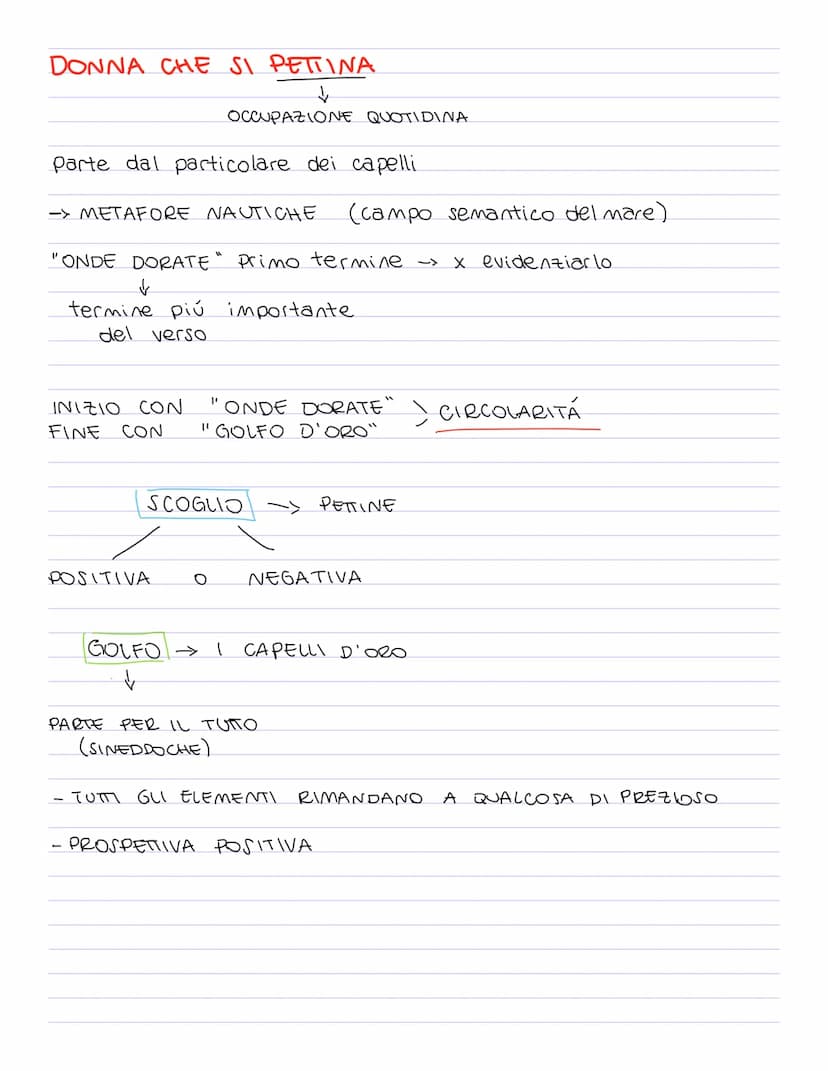 DONNA CHE SI PETTINA
↓
OCCUPAZIONE QUOTIDINA
Parte dal particolare dei capelli
-> METAFORE NAUTICHE (campo semantico del mare)
"ONDE DORATE" Primo termine -> x evidenziarlo
↓
termine piú importante
del verso
INIZIO CON "ONDE DORATE"
FINE CON "GOLFO D'ORO"
CIRCOLARITÁ
SCOGLIO -> PETTINE
POSITIVA O NEGATIVA
GOLFO -> I CAPELLI D'ORO
↓
PARTE PER IL TUTTO
(SINEDDOCHE)
- TUTTI GLI ELEMENTI RIMANDANO A QUALCOSA DI PREZIOSO
- PROSPETTIVA POSITIVA